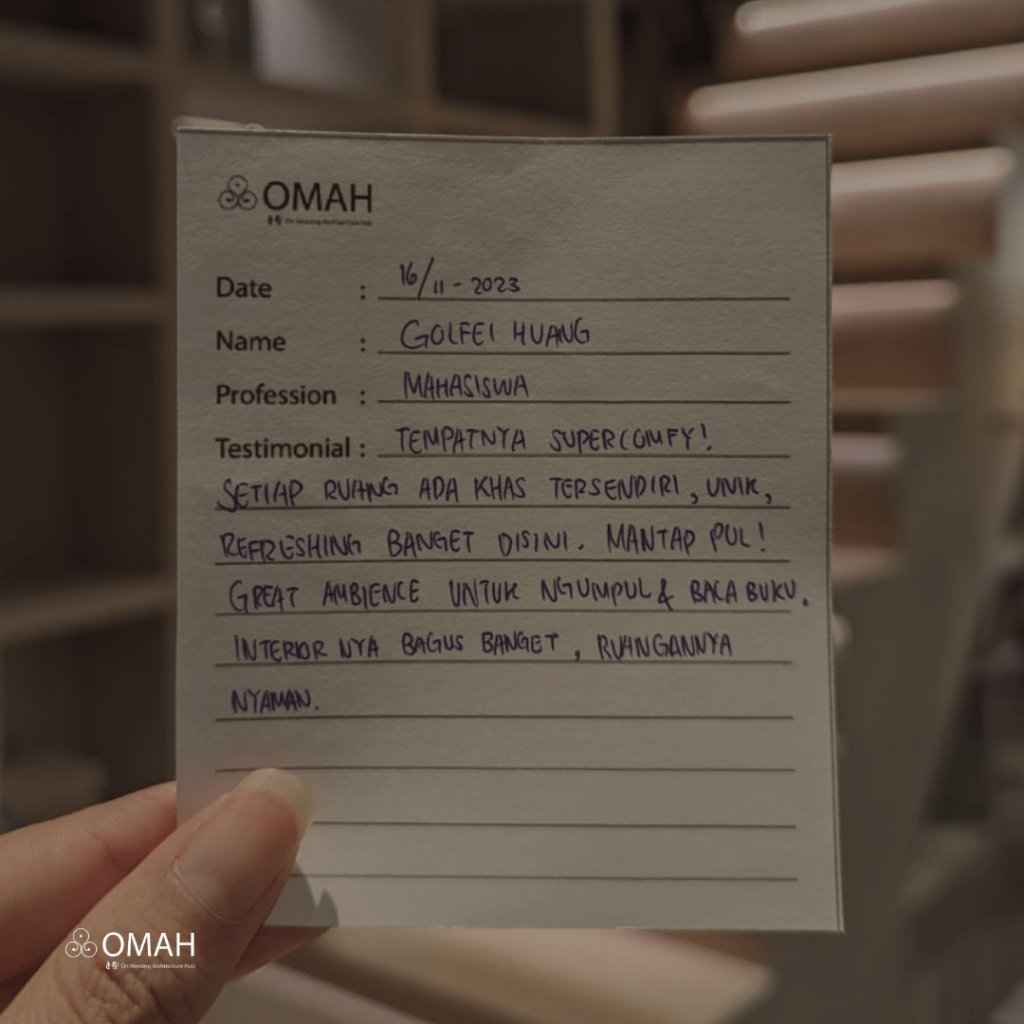 OMAH
On Meeting Architecture Hub
Date : 16/11-2023
Name : GOLFEI HUANG
Profession : MAHASISWA
Testimonial : TEMPATNYA SUPER COMFY!
SETIAP RUANG ADA KHAS TERSENDIRI, UNIK,
REFRESHING BANGET DISINI. MANTAP PUL!
GREAT AMBIENCE UNTUK NGUMPUL & BACA BUKU.
INTERIOR NYA BAGUS BANGET, RUANGANNYA
NYAMAN.
OMAH
On Meeting Architecture Hub